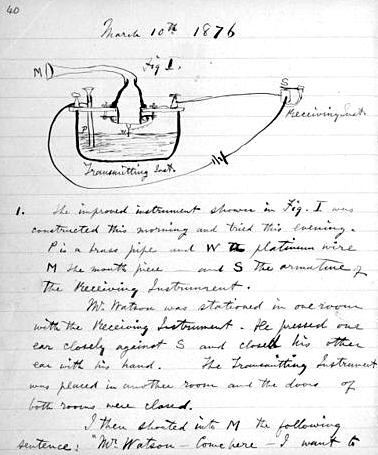 40
March 10th 1876
Fig 1.
M
S
Receiving Inst.
P
W
Transmitting Inst.
1. The improved instrument shown in Fig. I was
constructed this morning and tried this evening.
P is a brass pipe and W the platinum wire
M the mouth piece and S the armature of
The Receiving Instrument.
Mr. Watson was stationed in one room
with the Receiving Instrument. He pressed one
ear closely against S and closed his other
ear with his hand. The Transmitting Instrument
was placed in another room and the doors of
both rooms were closed.
I then shouted into M the following
sentence: "Mr Watson – Come here – I want to